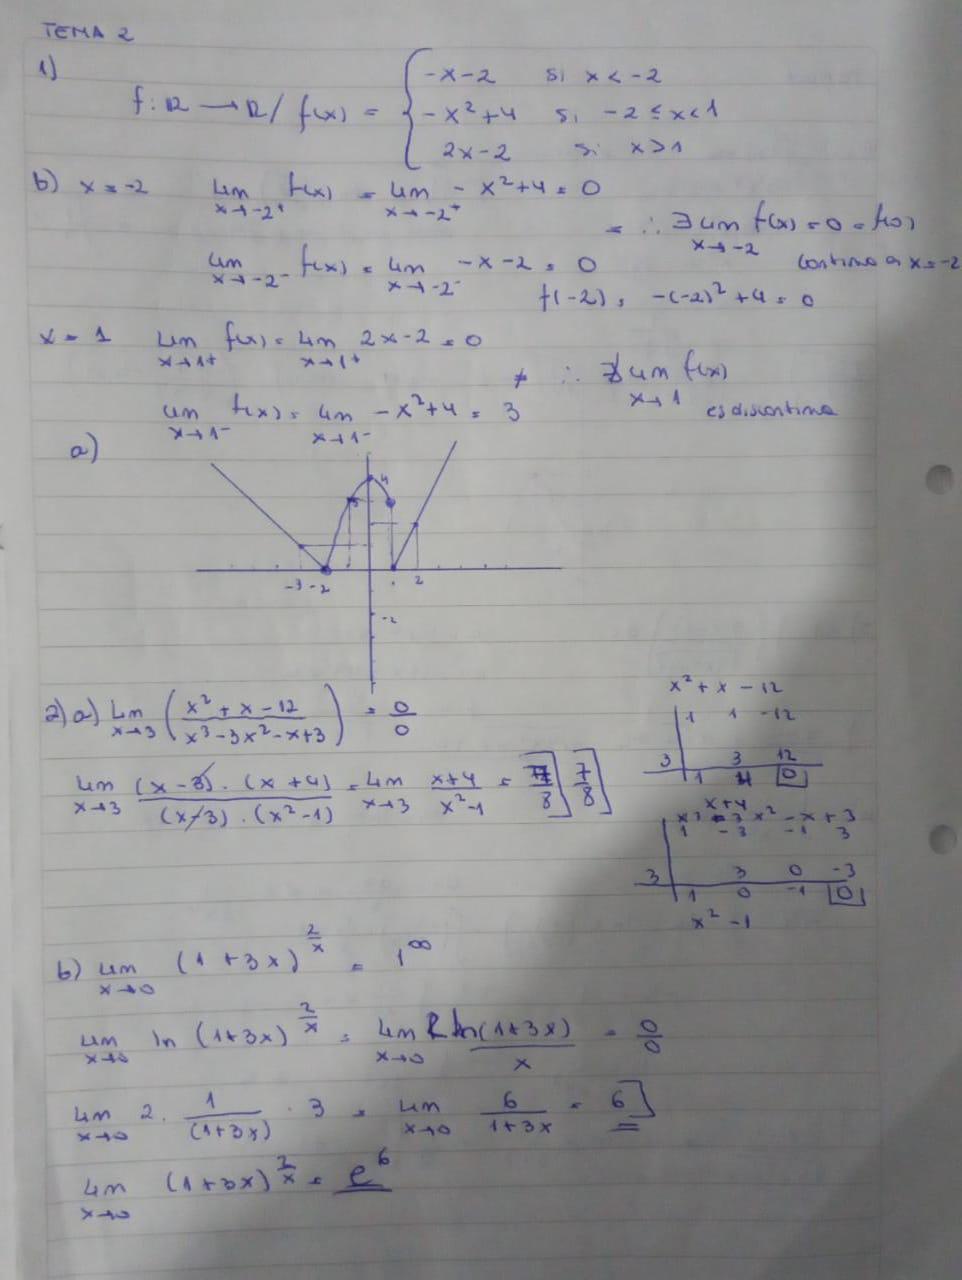 TEMA 2
1)
f: R → R / f(x) = { -x-2 si x < -2
-x² + 4 si -2 ≤ x < 1
2x-2 si x > 1
b) x = -2 Lim x→-2⁺ f(x) = Lim x→-2⁺ -x²+4 = 0
= ∴ ∃ Lim x→-2 f(x) = 0 = f(0)
Lim x→-2⁻ f(x) = Lim x→-2⁻ -x-2 = 0 continua en x = -2
f(-2) = -(-2)² + 4 = 0
x = 1 Lim x→1⁺ f(x) = Lim x→1⁺ 2x-2 = 0
≠ ∴ ∄ Lim x→1 f(x)
Lim x→1⁻ f(x) = Lim x→1⁻ -x²+4 = 3 es discontinua
a)
4
-3 -2 1 2
-2
2) a) Lim x→3 ( (x² + x - 12) / (x³ - 3x² - x + 3) ) = 0/0
Lim x→3 (x-3) · (x+4) / (x-3) · (x²-1) = Lim x→3 (x+4) / (x²-1) = 7/8
x² + x - 12
1 1 -12
3 3 12
1 4 0
x+4
x³ - 3x² - x + 3
1 -3 -1 3
3 3 0 -3
1 0 -1 0
x² - 1
b) Lim x→0 (1 + 3x)^(2/x) = 1^∞
Lim x→0 ln (1+3x)^(2/x) = Lim x→0 2 ln(1+3x) / x = 0/0
Lim x→0 2 · 1/(1+3x) · 3 = Lim x→0 6/(1+3x) = 6
Lim x→0 (1+3x)^(2/x) = e⁶